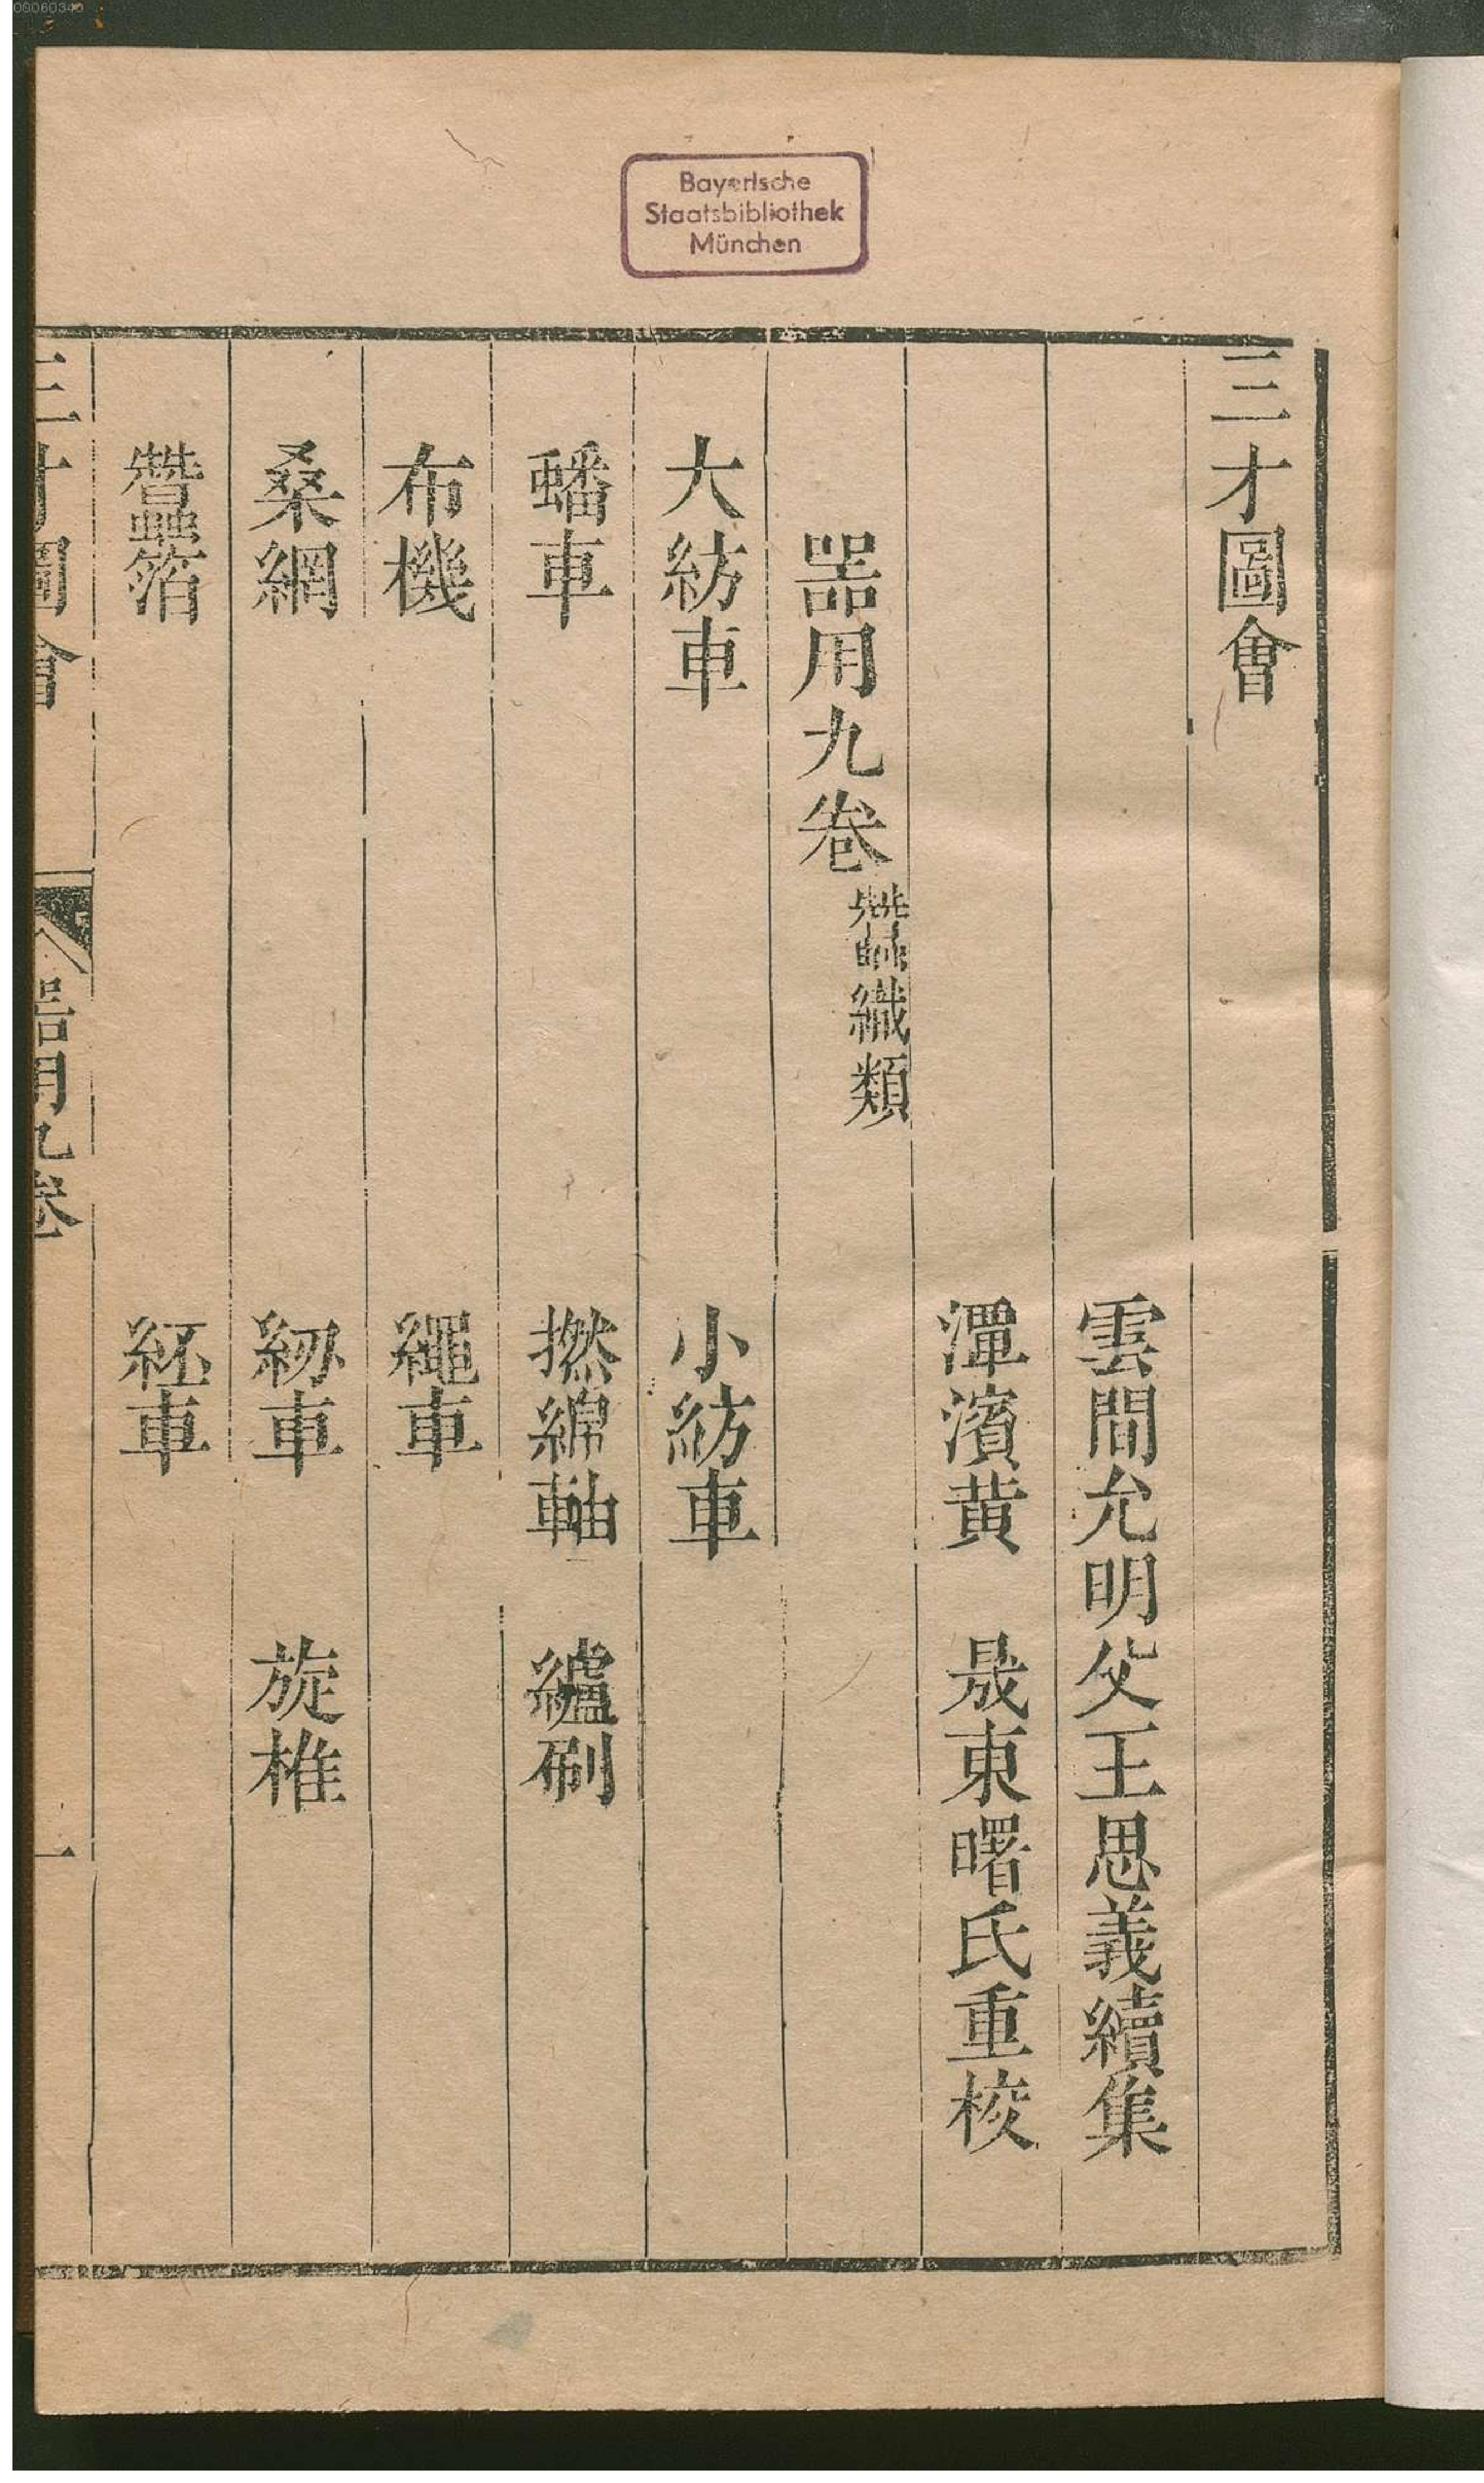 00060340
Bayerische
Staatsbibliothek
München
三才圖會
雲間允明父王思義續集
潭濱黄　晟東曙氏重校
器用九卷 蠶織類
大紡車　小紡車
蟠車　撚綿軸　纑刷
布機　繩車
桑網　紉車　旋椎
蠶箔　紝車
三才圖會　器用九卷　一